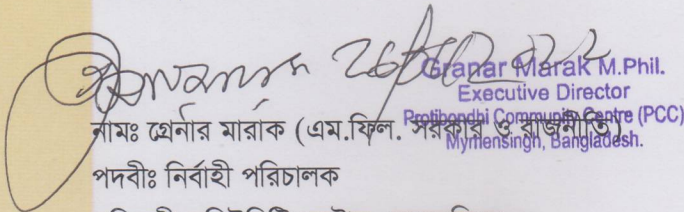 Granar Marak M.Phil.
Executive Director
Protibondhi Community Centre (PCC)
Mymensingh, Bangladesh.
নামঃ গ্রেনার মারাক (এম.ফিল. সরকার ও রাজনীতি)
পদবীঃ নির্বাহী পরিচালক